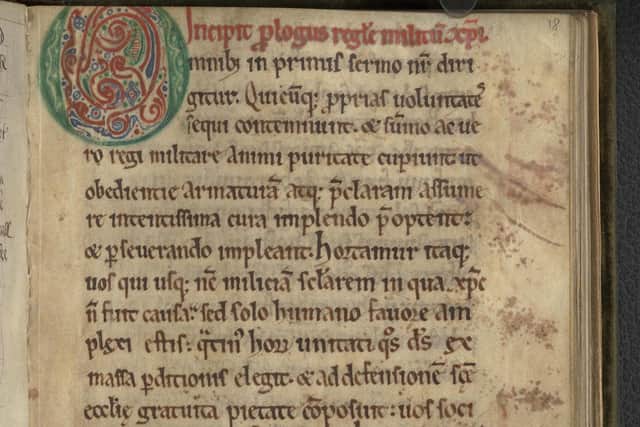 18
Incipit p̄logus regl̄e militū xp̄i.
Omnib; in primis sermo nr̄ diri
gitur. Quicūq; p̄prias uoluntate᷒
sequi contemnunt. & sūmo ac ue
ro regi militare animi puritate cupiunt ut
obedientie armaturā atq; p̄claram assume
re intentissima cura implendo p̄optent:
& p̄seuerando impleant. hortamur itaq;
uos qui usq; nc̄ miliciā sclārem in qua xp̄c
n̄ fuit causa: sed solo humano fauore am
plexi estis: q̄tin᷒ hor᷒ unitati q̄s d̄s ex
massa p̄ditionis elegit. & ad defensionē sc̄e
ecclīe gratuita pietate cōposuit: uos soci